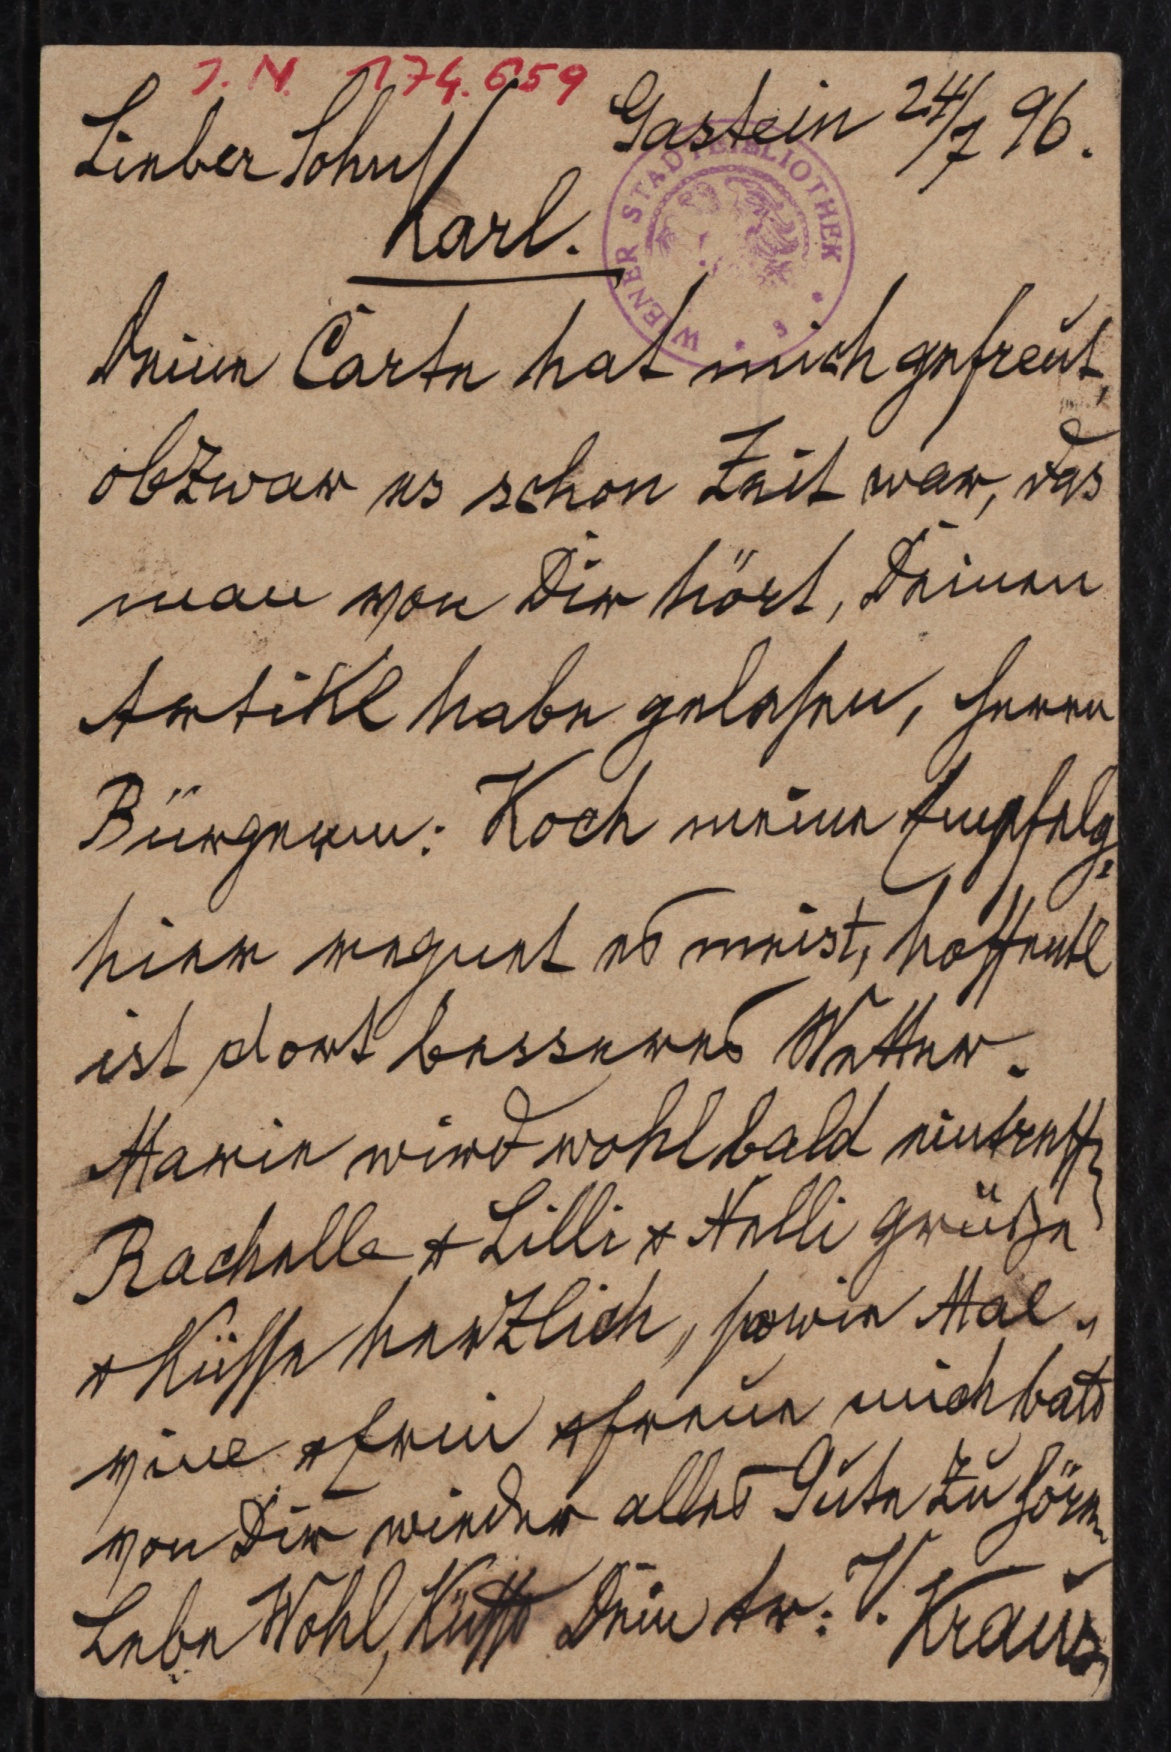 J. N. 174.659
Gastein 24/7 96.
Lieber Sohn
Karl.
WIENER STADTBIBLIOTHEK
Deine Carte hat mich gefreut,
obzwar es schon Zeit war, das
man von Dir hört, Deinen
Artikl habe gelesen, Herrn
Bürgerm: Koch meine Empfelg:
hier regnet es meist, hoffentl
ist dort besseres Wetter.
Marie wird wohl bald eintreff
Rachelle & Lilli & Nelli grüße
& Küsse herzlich, sowie Mal„
vine & & freue mich bald
von Dir wieder alles Gute zu hören
Lebe Wohl, Küsst Dein tr: V. Kraus